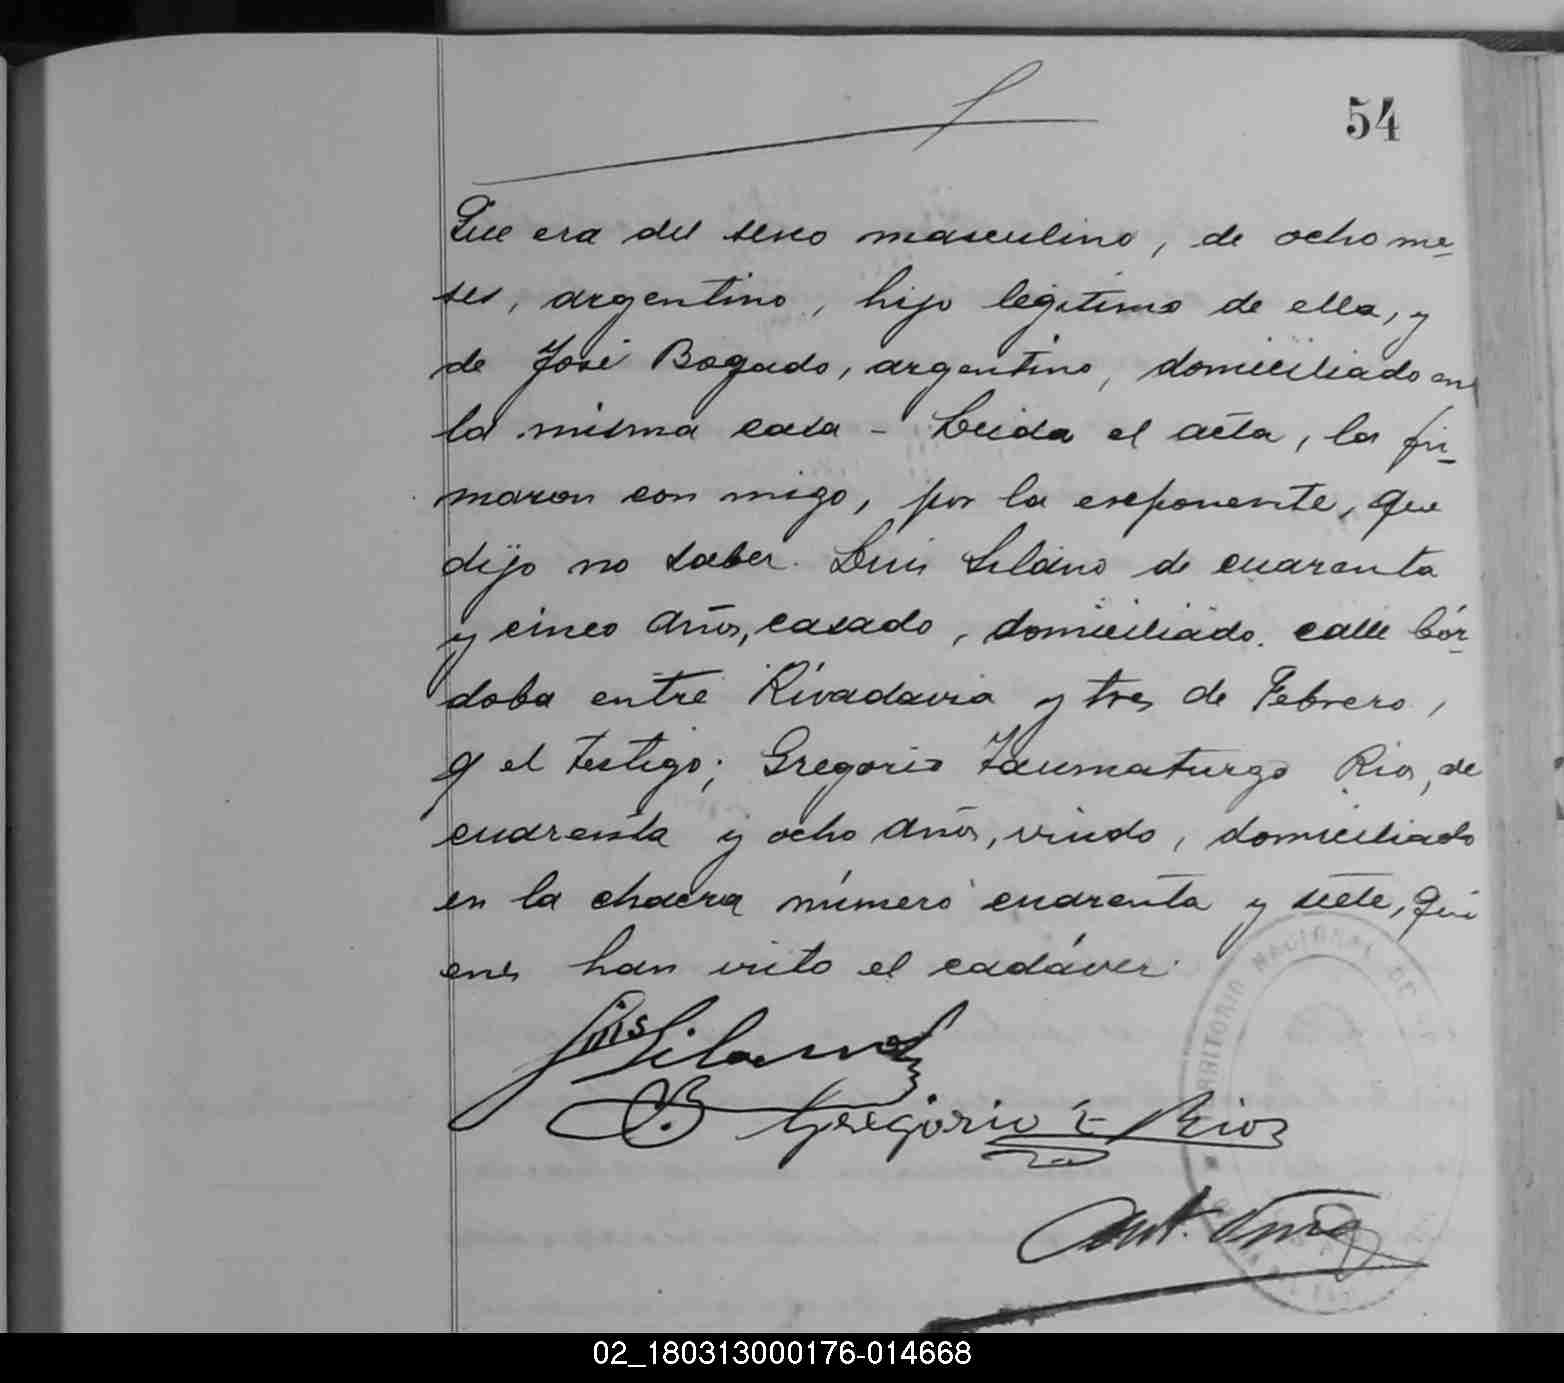 54
Que era del sexo masculino, de ocho me-
ses, argentino, hijo legitimo de ella, y
de José Bogado, argentino, domiciliado en
la misma casa - Leida el acta, la fir-
maron con migo, por la exponente, que
dijo no saber. Luis Silano de cuarenta
y cinco años, casado, domiciliado. calle Cór-
doba entre Rivadavia y tres de Febrero,
y el testigo; Gregorio Taumaturgo Rios, de
cuarenta y ocho años, viudo, domiciliado
en la chacra número cuarenta y siete, qui
enes han visto el cadáver.
Luis Silano
Gregorio T Rios
TERRITORIO NACIONAL DE
Ant.
02_180313000176-014668